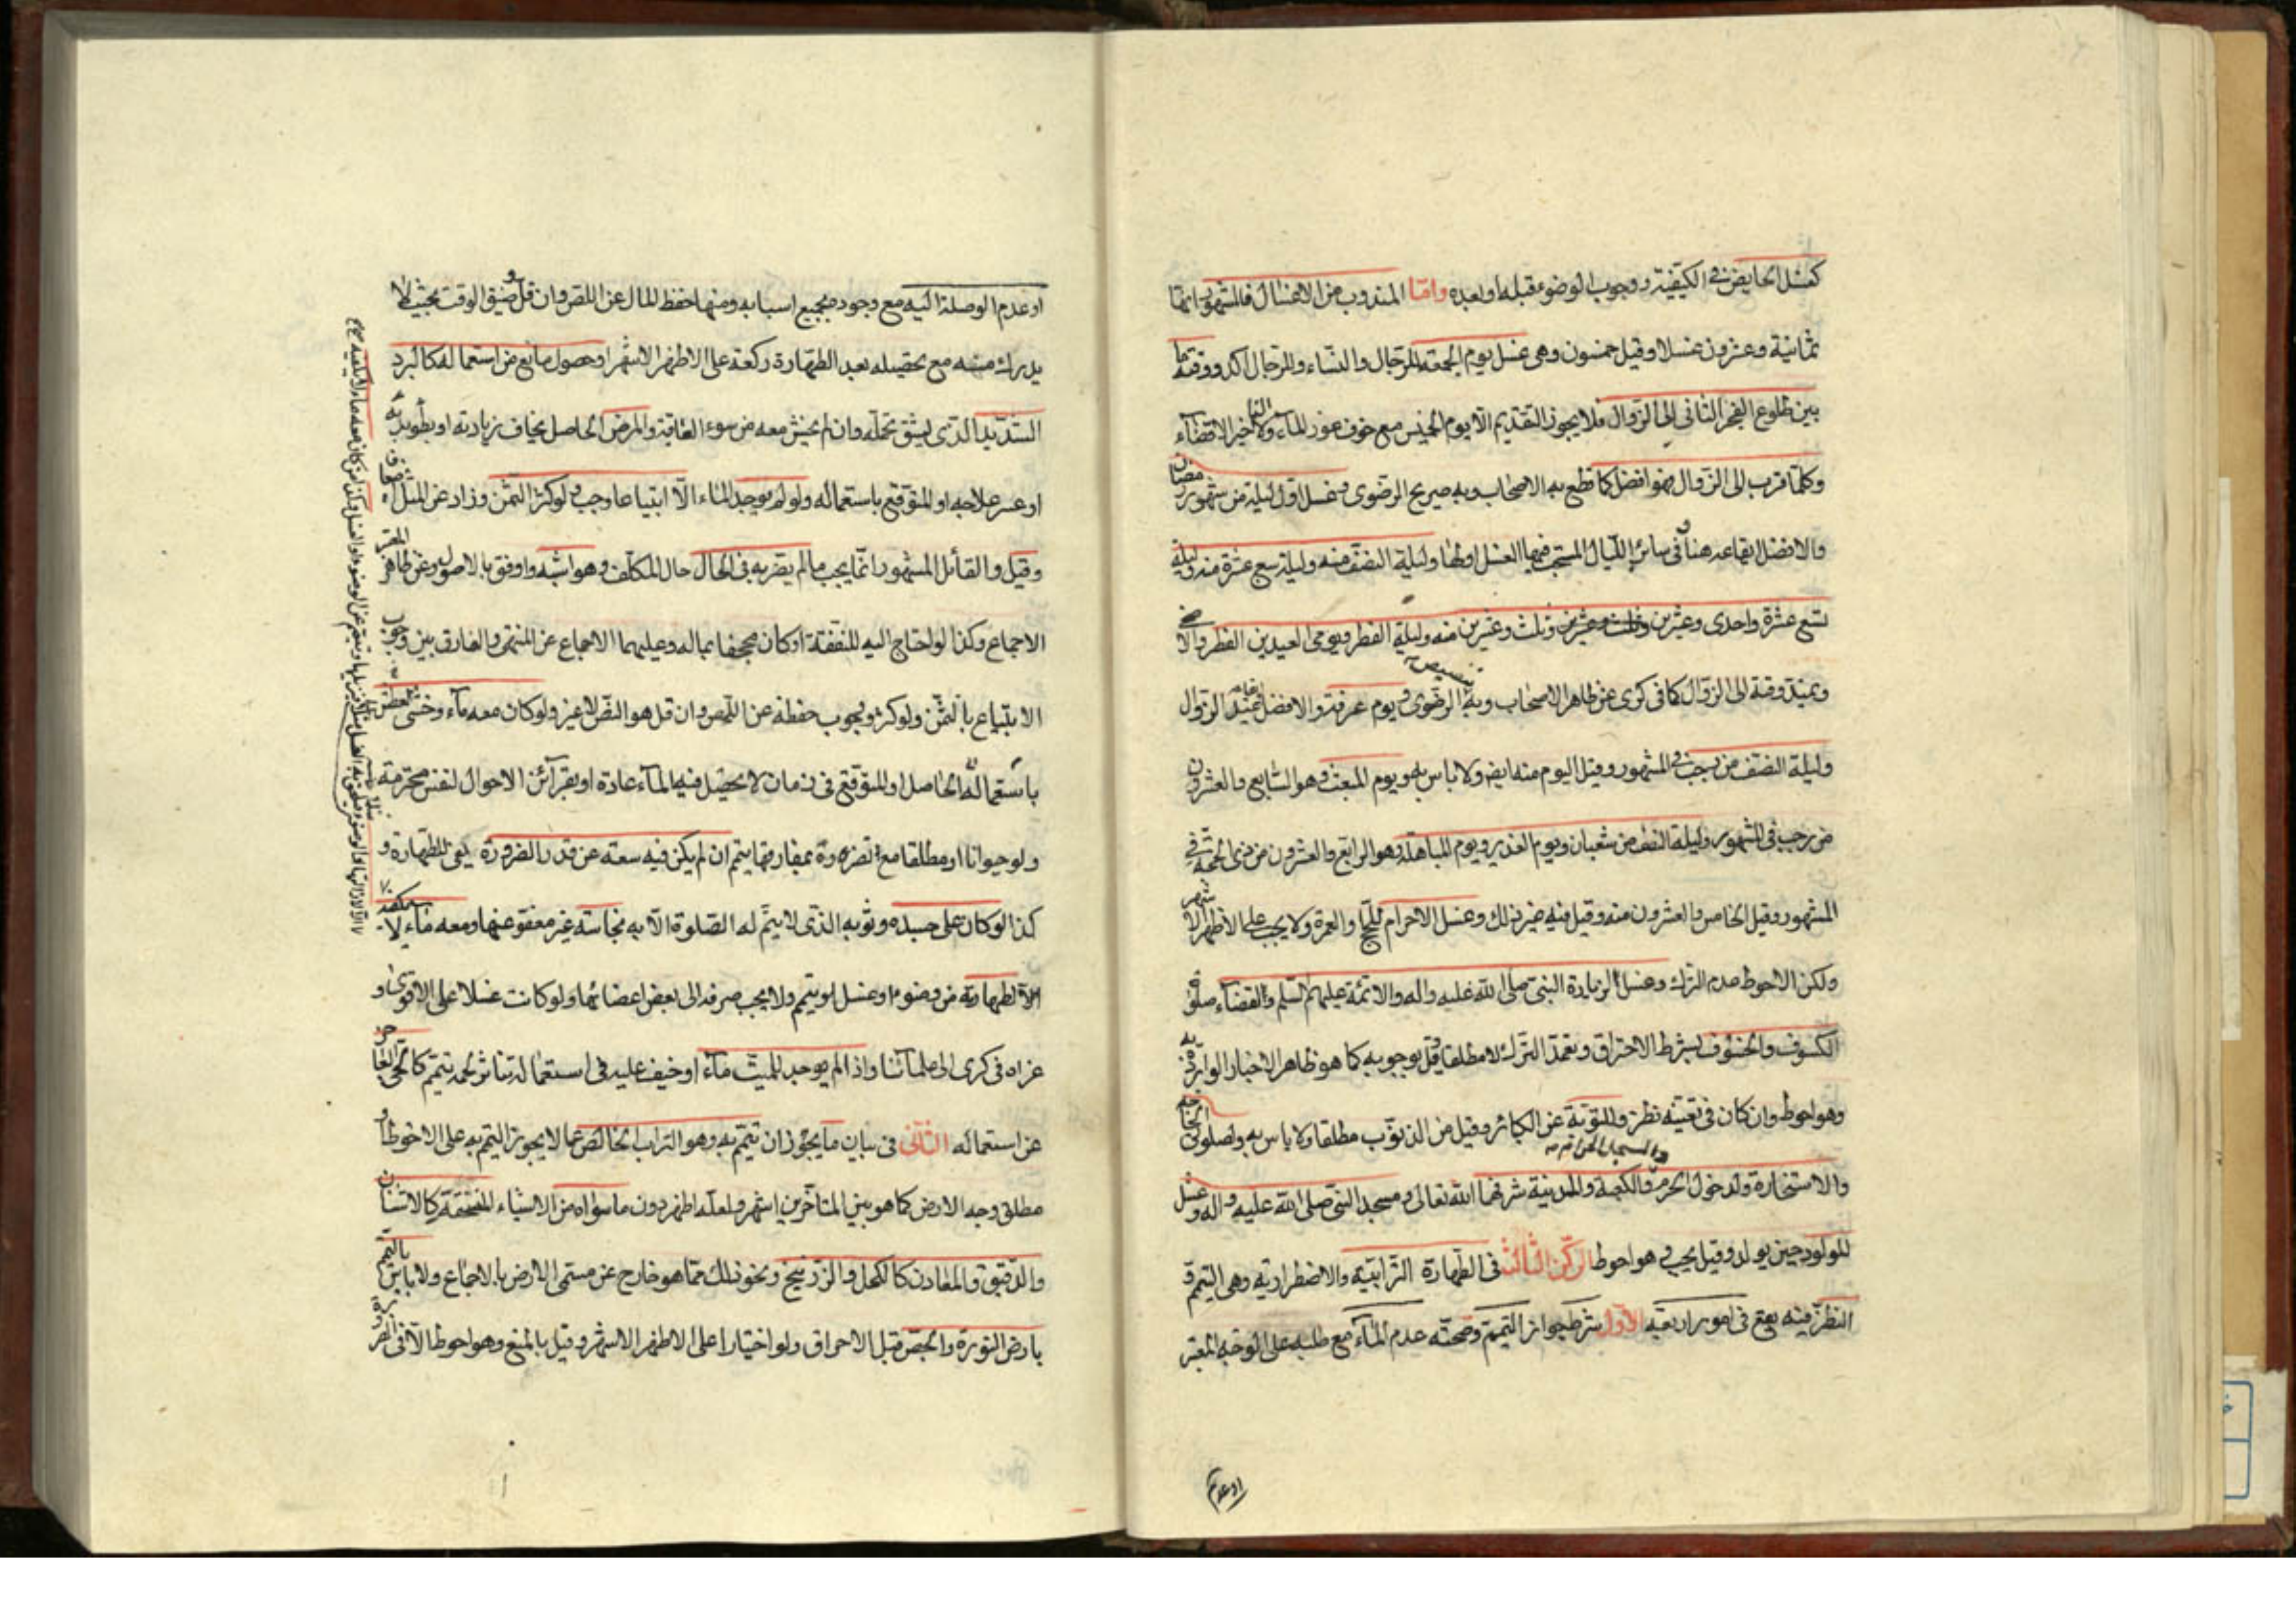 كغسل الحايض في الكيفية ووجوب الوضوء قبله او بعده واما المندوب من الاغسال فالمشهور انها
ثمانية وعشرون غسلا وقيل خمسون وهى غسل يوم الجمعة للرجال والنساء وللرجال اكد ووقته ما
بين طلوع الفجر الثانى الى الزوال فلا يجوز التقديم الا يوم الخميس مع خوف عوز الماء ولا التاخير الا قضاء
وكلما قرب الى الزوال فهو افضل كما قطع به الاصحاب وبه صريح الرضوى وغسل اول ليلة من شهر رمضان
والافضل ايقاعه هنا وفى سائر الليالى المستحب فيها الغسل اولها وليلة النصف منه وليلة سبع عشرة منه وليلة
تسع عشرة واحدى وعشرين وثلث وعشرين منه وليلة الفطر ويومى العيدين الفطر والاضحى
ويمتد وقته الى الزوال كما فى كرى عن ظاهر الاصحاب وبه تنصيص الرضوى ويوم عرفة والافضل عند الزوال
وليلة النصف من رجب فى المشهور وقيل اليوم منه ايضا ولا باس به ويوم المبعث وهو السابع والعشرون
من رجب فى المشهور وليلة النصف من شعبان ويوم الغدير ويوم المباهلة وهو الرابع والعشرون من ذى الحجة فى
المشهور وقيل الخامس والعشرون منه وقيل فيه غير ذلك وغسل الاحرام للحج والعمرة ولا يجب على الاظهر الاشهر
ولكن الاحوط عدم الترك وغسل الزيارة النبى صلى الله عليه واله والائمة عليهم السلم والقضاء صلوة
الكسوف والخسوف بشرط الاحتراق وتعمد الترك لا مطلقا وقيل بوجوبه كما هو ظاهر الاخبار الواردة به
وهو احوط وان كان فى تعينه نظر وللتوبة عن الكبائر وقيل من الذنوب مطلقا ولا باس به ولصلوتى الحاجة
والاستخارة ولدخول الحرم والمسجد الحرام والكعبة والمدينة شرفها الله تعالى ومسجد النبى صلى الله عليه واله وغسل
للمولود حين يولد وقيل يجب وهو احوط الركن الثالث فى الطهارة الترابية والاضطرارية وهى التيمم و
النظر فيه يقع فى امور اربعة الاول شرط جواز التيمم وصحته عدم الماء مع طلبه على الوجه المعتبر
او عدم
او عدم الوصلة اليه مع وجود جميع اسبابه ومنها حفظ المال عن اللص وان قل وضيق الوقت بحيث لا
يدرك منه مع تحصيله بعد الطهارة ركعة على الاظهر الاشهر او حصول مانع من استعماله كالبرد
الشديد الذى يشق تحمله وان لم يخش معه من سوء العاقبة والمرض الحاصل يخاف زيادته او بطوئه
او عسر علاجه او المتوقع باستعماله ولو لم يوجد الماء الا ابتياعا وجب ولو كثر الثمن وزاد عن المثل اضعافا
وقيل والقائل المشهور انما يجب ما لم يضر به فى الحال حال المكلف وهو اشبه واوفق بالاصول وعن ظاهر المعتبر
الاجماع وكذا لو احتاج اليه للنفقة او كان مجحفا بماله وعليهما الاجماع عن المنتهى والفارق بين وجوب
الابتياع بالثمن ولو كثر وجوب حفظه عن اللص وان قل هو النص لا غير ولو كان معه ماء وخشى العطش
باستعماله الحاصل او المتوقع فى زمان لا يحصل فيه الماء عادة او بقرائن الاحوال لنفس محترمة
ولو حيوانا او مطلقا مع تضرره بمفارقتها يتيمم ان لم يكن فيه سعة عن قدر الضرورة يكفى للطهارة و
كذا لو كان على جسده وثوبه الذى لا يتم له الصلوة الا به نجاسة غير معفو عنها ومعه ماء لا يكفيه
الا لطهارته من وضوء او غسل لو يتيمم ولا يجب صرفه الى بعض اعضائها ولو كانت غسلا على الاقوى و
عزاه فى كرى الى علمائنا واذا لم يوجد للميت ماء او خيف عليه فى استعماله تناثر لحمه تيمم كالحى العاجز
عن استعماله الثانى فى بيان ما يجوز ان تتيمم به وهو التراب الخالص عما لا يجوز التيمم به على الاحوط او
مطلق وجه الارض كما هو بين المتاخرين اشهر ولعله اظهر دون ما سواه من الاشياء المنسحقة كالاشنان
والدقيق والمعادن كالكحل والزرنيخ ونحو ذلك مما هو خارج عن مسمى الارض بالاجماع ولا باس بالتيمم
بارض النورة والجص قبل الاحراق ولو اختيارا على الاظهر الاشهر وقيل بالمنع وهو احوط الا فى الضرورة